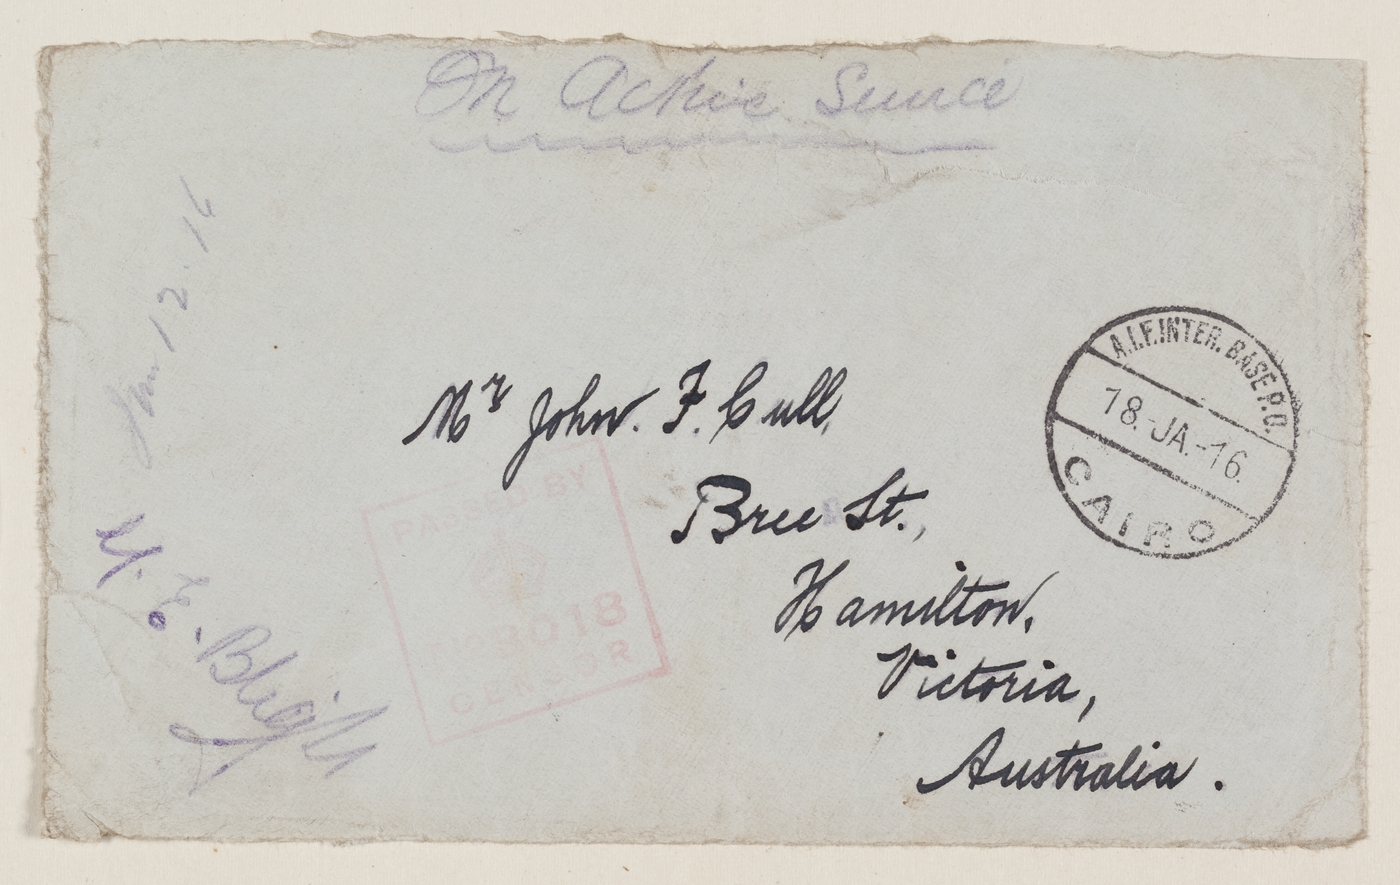 On Active Service
Jan 12. 16
A.I.F. INTER. BASE P.O.
18.-JA.-16.
CAIRO
Mr John. F. Cull,
Bree St.,
Hamilton,
Victoria,
Australia.
PASSED BY
3018
CENSOR
Bleigh